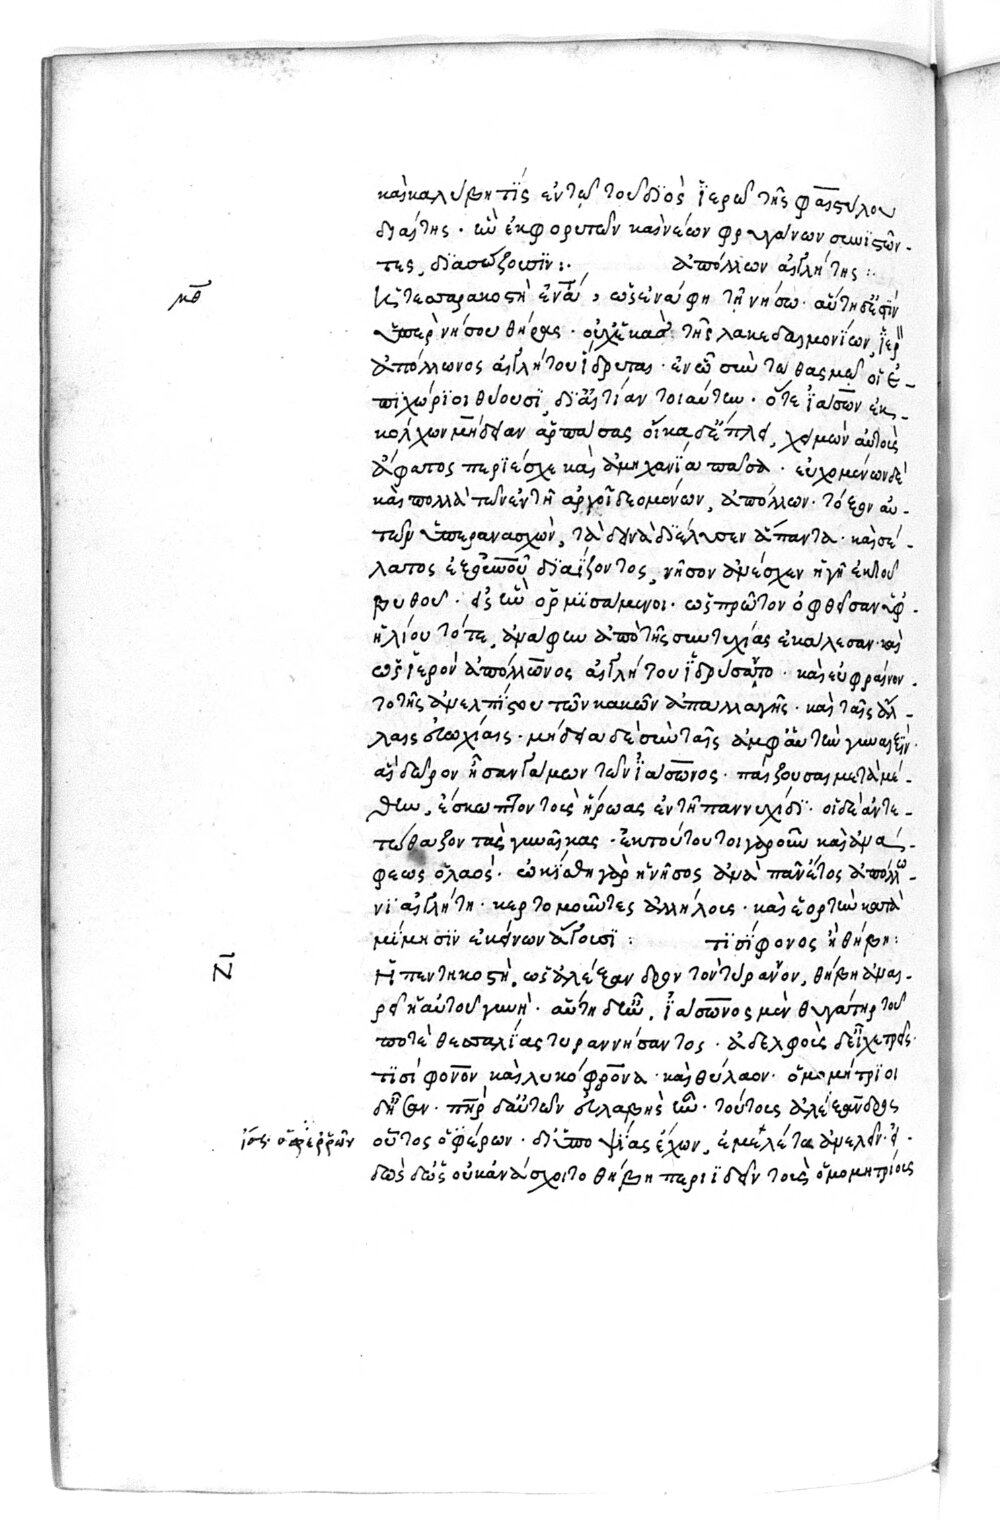 καὶ καλύβη τίς ἐν τῷ τοῦ διὸς ἱερῷ τῆς φαιστύλου
διαίτης· ἣν ἐκ φορυτῶν καὶ νέων φρυγάνων συνιστῶν-
τες, διασώζουσιν: ἀπόλλων αἰγλήτης:
μθ
Ἡ τεσσαρακοστὴ ἐνάτη, ὡς ἐν ἀνάφῃ τῇ νήσῳ· αὕτη δέ ἐστιν
ὑπὲρ νήσου θήρας· οὐχ ἑκὰς τῆς λακεδαιμονίων, ἱερὸν
ἀπόλλωνος αἰγλήτου ἵδρυται· ἐν ᾧ σὺν τωθασμῷ οἱ ἐ-
πιχώριοι θύουσι, δι' αἰτίαν τοιαύτην· ὅτε ἰάσων ἐκ
κόλχων μήδειαν ἁρπάσας οἴκαδε ἔπλει, χειμὼν αὐτοῖς
ἄφατος περιέσχε καὶ ἀμηχανία πᾶσα· εὐχομένων δὲ
καὶ πολλὰ τῶν ἐν τῇ ἀργοῖ δεομένων, ἀπόλλων· τόξον αὐ-
τῶν ὑπερανασχὼν, τὰ δεινὰ διέλυσεν ἅπαντα· καὶ σέ-
λατος ἐξ οὐρανοῦ διαΐξοντος, νῆσον ἀνέσχεν ἡ γῆ ἐκ τοῦ
βυθοῦ· εἰς ἣν ὁρμισάμενοι· ὡς πρῶτον ὀφθεῖσαν ὑφ'
ἡλίου τότε, ἀνάφην ἀπὸ τῆς συντυχίας ἐκάλεσαν· καὶ
ὡς ἱερὸν ἀπόλλωνος αἰγλήτου ἱδρύσαντο· καὶ εὐφραίνον-
το τῆς ἀνελπίστου τῶν κακῶν ἀπαλλαγῆς· καὶ ταῖς ἄλ-
λαις εὐωχίαις· μήδεια δὲ σὺν ταῖς ἀμφ' αὐτὴν γυναιξὶν·
αἳ δῶρον ἦσαν γάμων τῶν ἰάσωνος· παίζουσαι μετὰ μέ-
θην, ἔσκωπτον τοὺς ἥρωας ἐν τῇ παννυχίδι· οἱ δὲ ἀντε-
τώθαζον τὰς γυναῖκας· ἐκ τούτου τοιγαροῦν καὶ ἀνά-
φεως ὁ λαὸς· ᾠκίσθη γὰρ ἡ νῆσος ἀνὰ πᾶν ἔτος ἀπόλλω-
νι αἰγλήτῃ· κερτομοῦντες ἀλλήλους· καὶ ἑορτὴν κατὰ
μίμησιν ἐκείνων ἄγουσι: τισίφονος ἢ θήβη:
Ν
Ἡ πεντηκοστὴ, ὡς ἀλέξανδρον τὸν τύραννον, θήβη ἀναι-
ρεῖ ἡ αὐτοῦ γυνὴ· αὕτη δ' ἦν, ἰάσωνος μὲν θυγάτηρ τοῦ
ποτὲ θεσσαλίας τυραννήσαντος· ἀδελφοὺς δὲ εἶχε τρεῖς·
τισίφονον καὶ λυκόφρονα· καὶ πύλαον· ὁμομήτριοι
δὴ ἦσαν· πατὴρ δ' αὐτῶν εὐλαβὴς ἦν· τούτους ἀλέξανδρος
ἴσως ὁ φερρῶν
οὗτος ὁ φέρων· δι' ὑποψίας ἔχων, ἐμελέτα ἀνελεῖν· εἰ-
δὼς δ' ὡς οὐκ ἀνάσχοιτο θήβη περιϊδεῖν τοὺς ὁμομητρίους